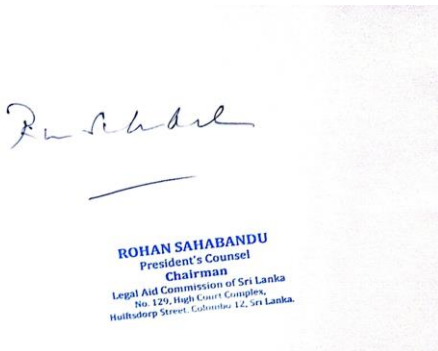 ROHAN SAHABANDU
President's Counsel
Chairman
Legal Aid Commission of Sri Lanka
No. 129, High Court Complex,
Hulftsdorp Street, Colombo 12, Sri Lanka.